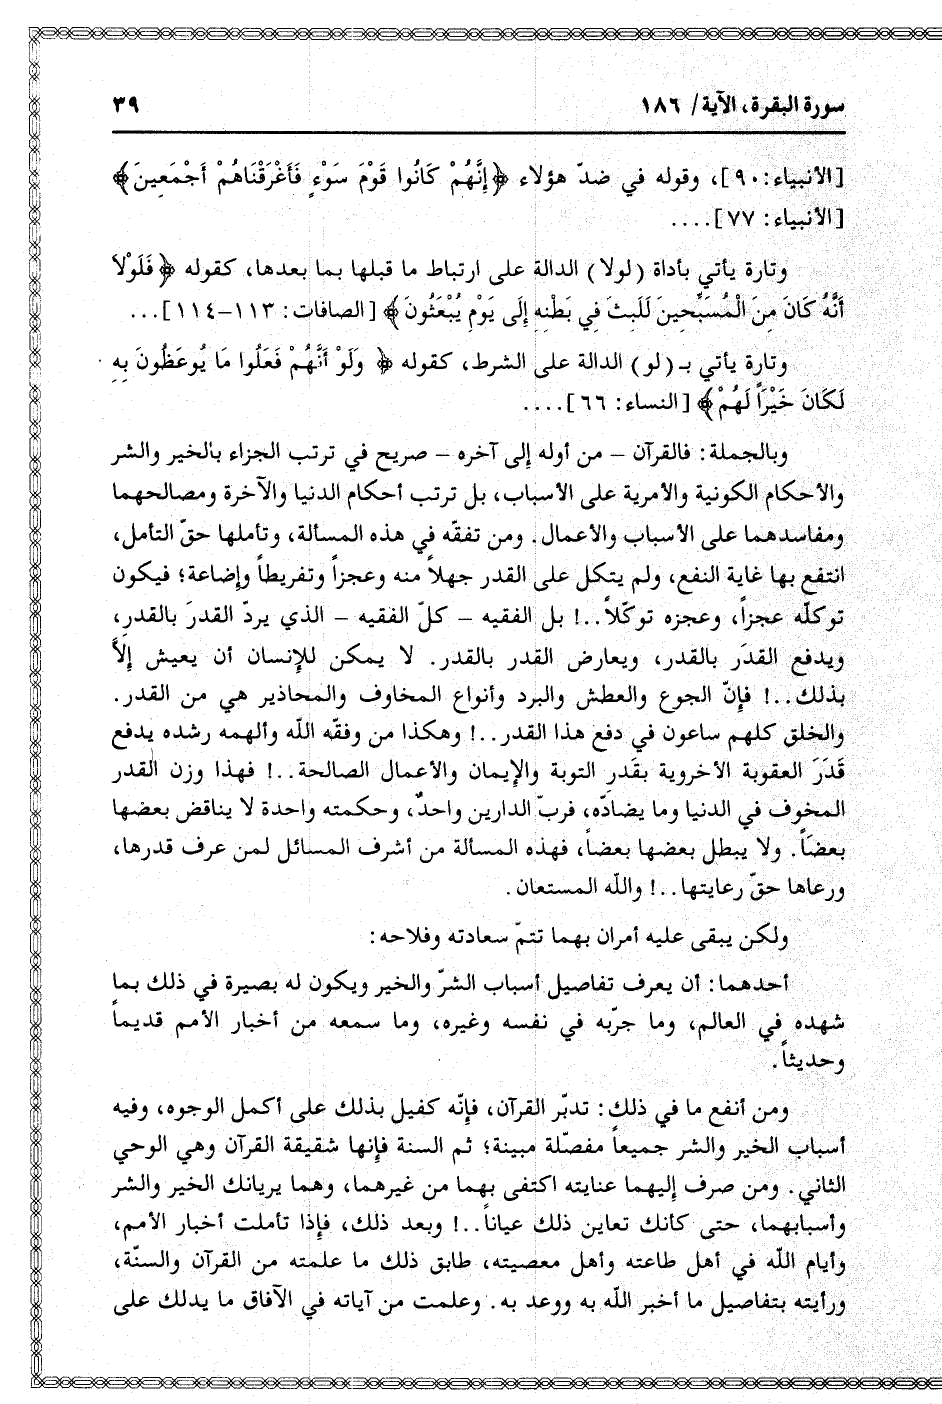 سورة البقرة، الآية/ ١٨٦
٣٩
[الأنبياء: ٩٠]، وقوله في ضدّ هؤلاء ﴿إِنَّهُمْ كَانُوا قَوْمَ سَوْءٍ فَأَغْرَقْنَاهُمْ أَجْمَعِينَ﴾
[الأنبياء: ٧٧]....
وتارة يأتي بأداة (لولا) الدالة على ارتباط ما قبلها بما بعدها، كقوله ﴿فَلَوْلاَ
أَنَّهُ كَانَ مِنَ الْمُسَبِّحِينَ لَلَبِثَ فِي بَطْنِهِ إِلَى يَوْمِ يُبْعَثُونَ﴾ [الصافات: ١١٣-١١٤]...
وتارة يأتي بـ (لو) الدالة على الشرط، كقوله ﴿ وَلَوْ أَنَّهُمْ فَعَلُوا مَا يُوعَظُونَ بِهِ
لَكَانَ خَيْرَاً لَهُمْ﴾ [النساء: ٦٦]....
وبالجملة: فالقرآن – من أوله إلى آخره – صريح في ترتب الجزاء بالخير والشر
والأحكام الكونية والأمرية على الأسباب، بل ترتب أحكام الدنيا والآخرة ومصالحهما
ومفاسدهما على الأسباب والأعمال. ومن تفقّه في هذه المسألة، وتأملها حقّ التأمل،
انتفع بها غاية النفع، ولم يتكل على القدر جهلاً منه وعجزاً وتفريطاً وإضاعة؛ فيكون
توكلّه عجزاً، وعجزه توكّلاً..! بل الفقيه – كلّ الفقيه – الذي يردّ القدرَ بالقدرِ،
ويدفع القدَر بالقدر، ويعارض القدر بالقدر. لا يمكن للإنسان أن يعيش إلاَّ
بذلك..! فإنّ الجوع والعطش والبرد وأنواع المخاوف والمحاذير هي من القدر.
والخلق كلهم ساعون في دفع هذا القدر..! وهكذا من وفقّه الله وألهمه رشده يدفع
قَدَرَ العقوبة الأخروية بقَدرِ التوبة والإيمان والأعمال الصالحة..! فهذا وزن القدر
المخوف في الدنيا وما يضادّه، فربّ الدارين واحدٌ، وحكمته واحدة لا يناقض بعضها
بعضاً. ولا يبطل بعضها بعضاً، فهذه المسألة من أشرف المسائل لمن عرف قدرها،
ورعاها حقّ رعايتها..! والله المستعان.
ولكن يبقى عليه أمران بهما تتمّ سعادته وفلاحه:
أحدهما: أن يعرف تفاصيل أسباب الشرّ والخير ويكون له بصيرة في ذلك بما
شهده في العالم، وما جرّبه في نفسه وغيره، وما سمعه من أخبار الأمم قديماً
وحديثاً.
ومن أنفع ما في ذلك: تدبّر القرآن، فإنّه كفيل بذلك على أكمل الوجوه، وفيه
أسباب الخير والشر جميعاً مفصّلة مبينة؛ ثم السنة فإنها شقيقة القرآن وهي الوحي
الثاني. ومن صرف إليهما عنايته اكتفى بهما من غيرهما، وهما يريانك الخير والشر
وأسبابهما، حتى كأنك تعاين ذلك عياناً..! وبعد ذلك، فإذا تأملت أخبار الأمم،
وأيام اللّه في أهل طاعته وأهل معصيته، طابق ذلك ما علمته من القرآن والسنّة،
ورأيته بتفاصيل ما أخبر اللّه به ووعد به. وعلمت من آياته في الآفاق ما يدلك على